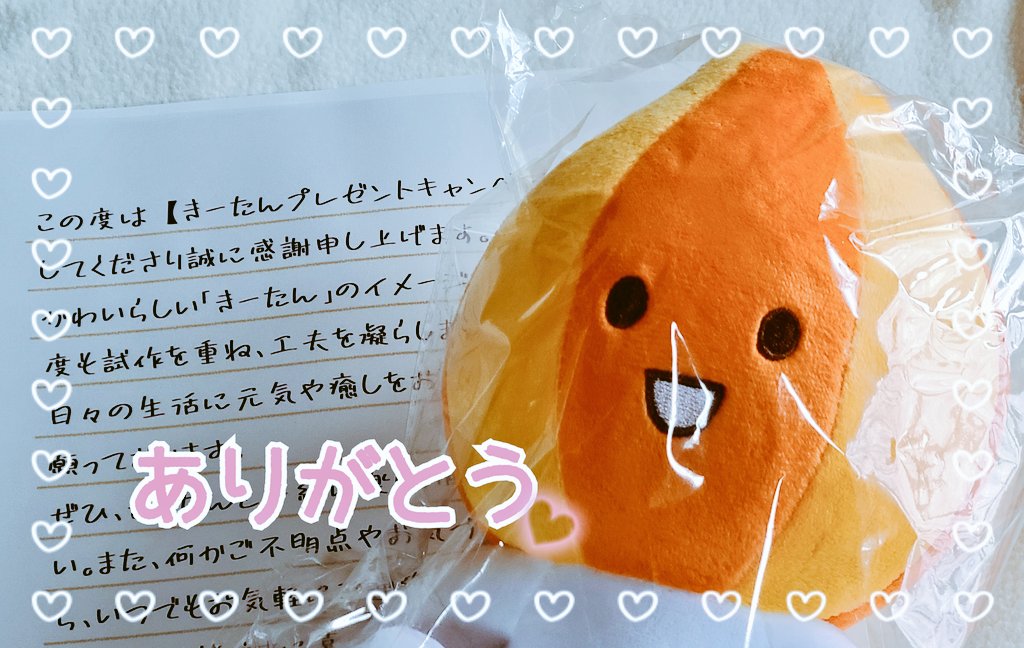 この度は【きーたんプレゼントキャンペ
してくださり誠に感謝申し上げます。
かわいらしい「きーたん」のイメー
度も試作を重ね、工夫を凝らしま
日々の生活に元気や癒しをお
願って
ぜひ、
い。また、何かご不明点やお気
ら、いつでもお気軽に
ありがとう